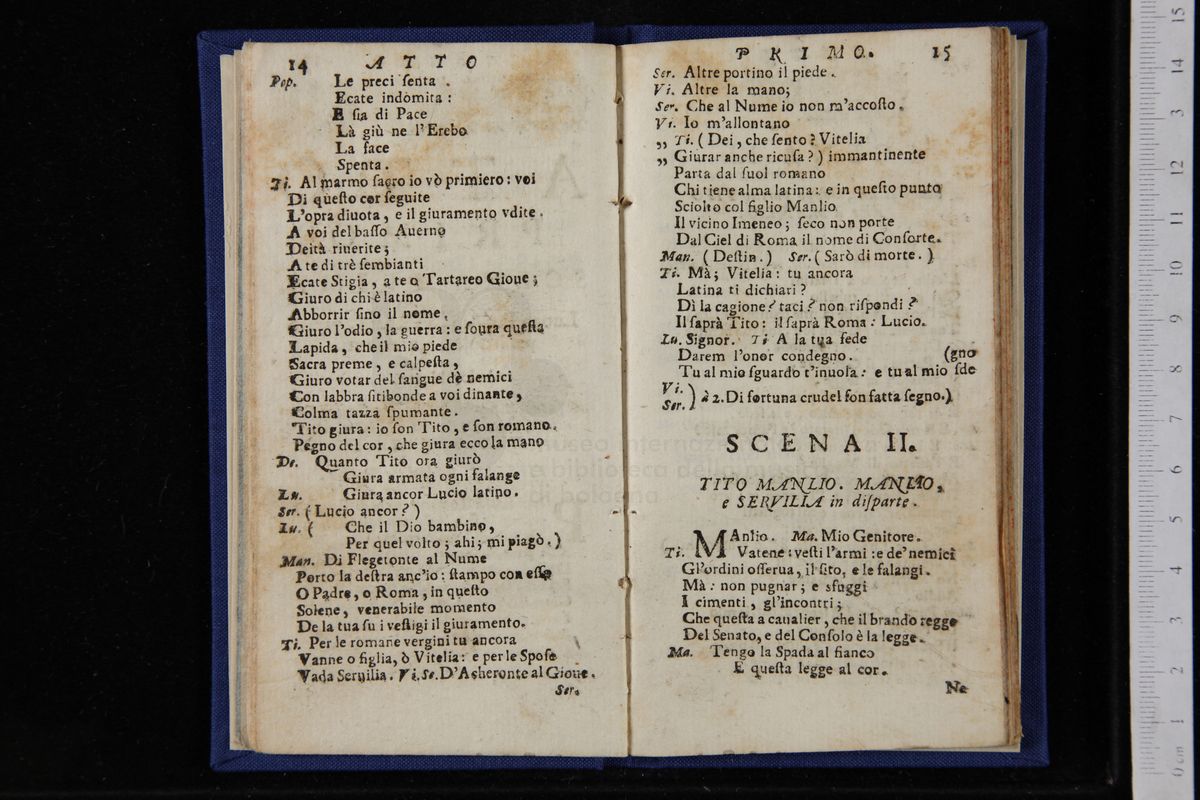 14 ATTO
Pop. Le preci ſenta .
Ecate indomita :
E ſia di Pace
Là giù ne l'Erebo
La face
Spenta .
Ti. Al marmo ſacro io vò primiero : voi
Di queſto cor ſeguite
L'opra diuota , e il giuramento vdite .
A voi del baſſo Auerno
Deità riuerite ;
A te di trè ſembianti
Ecate Stigia , a te o Tartareo Gioue ;
Giuro di chi è latino
Abborrir ſino il nome .
Giuro l'odio , la guerra : e ſoura queſta
Lapida , che il mio piede
Sacra preme , e calpeſta ,
Giuro votar del ſangue dè nemici
Con labbra ſitibonde a voi dinante ,
Colma tazza ſpumante .
Tito giura : io ſon Tito , e ſon romano .
Pegno del cor , che giura ecco la mano
De. Quanto Tito ora giurò
Giura armata ogni falange
Lu. Giura ancor Lucio latino .
Ser. ( Lucio ancor ? )
Lu. ( Che il Dio bambino ,
Per quel volto ; ahi ; mi piagò . )
Man. Di Flegetonte al Nume
Porto la deſtra anc'io : ſtampo con eſſa
O Padre , o Roma , in queſto
Solene , venerabile momento
De la tua ſu i veſtigi il giuramento .
Ti. Per le romane vergini tu ancora
Vanne o figlia , ò Vitelia : e per le Spoſe
Vada Seruilia . Vi. Se. D'Acheronte al Gioue .
Ser.
PRIMO. 15
Ser. Altre portino il piede .
Vi. Altre la mano ;
Ser. Che al Nume io non m'accoſto .
Vi. Io m'allontano
„ Ti. ( Dei , che ſento ? Vitelia
„ Giurar anche ricuſa ? ) immantinente
Parta dal ſuol romano
Chi tiene alma latina : e in queſto punto
Sciolto col figlio Manlio
Il vicino Imeneo ; ſeco non porte
Dal Ciel di Roma il nome di Conſorte .
Man. ( Deſtin . ) Ser. ( Sarò di morte . )
Ti. Mà ; Vitelia : tu ancora
Latina ti dichiari ?
Dì la cagione ? taci ? non riſpondi ?
Il ſaprà Tito : il ſaprà Roma : Lucio .
Lu. Signor . Ti A la tua fede
Darem l'onor condegno . (gno
Tu al mio ſguardo t'inuola : e tu al mio ſde
Vi. Ser. ) à 2. Di fortuna crudel ſon fatta ſegno . )
SCENA II.
TITO MANLIO. MANLIO,
e SERVILIA in diſparte .
Ti. MAnlio . Ma. Mio Genitore .
Vatene : veſti l'armi : e de' nemici
Gl'ordini oſſerua , il ſito , e le falangi .
Mà : non pugnar ; e sfuggi
I cimenti , gl'incontri ;
Che queſta a caualier , che il brando regge
Del Senato , e del Conſolo è la legge .
Ma. Tengo la Spada al fianco
E queſta legge al cor .
Ne